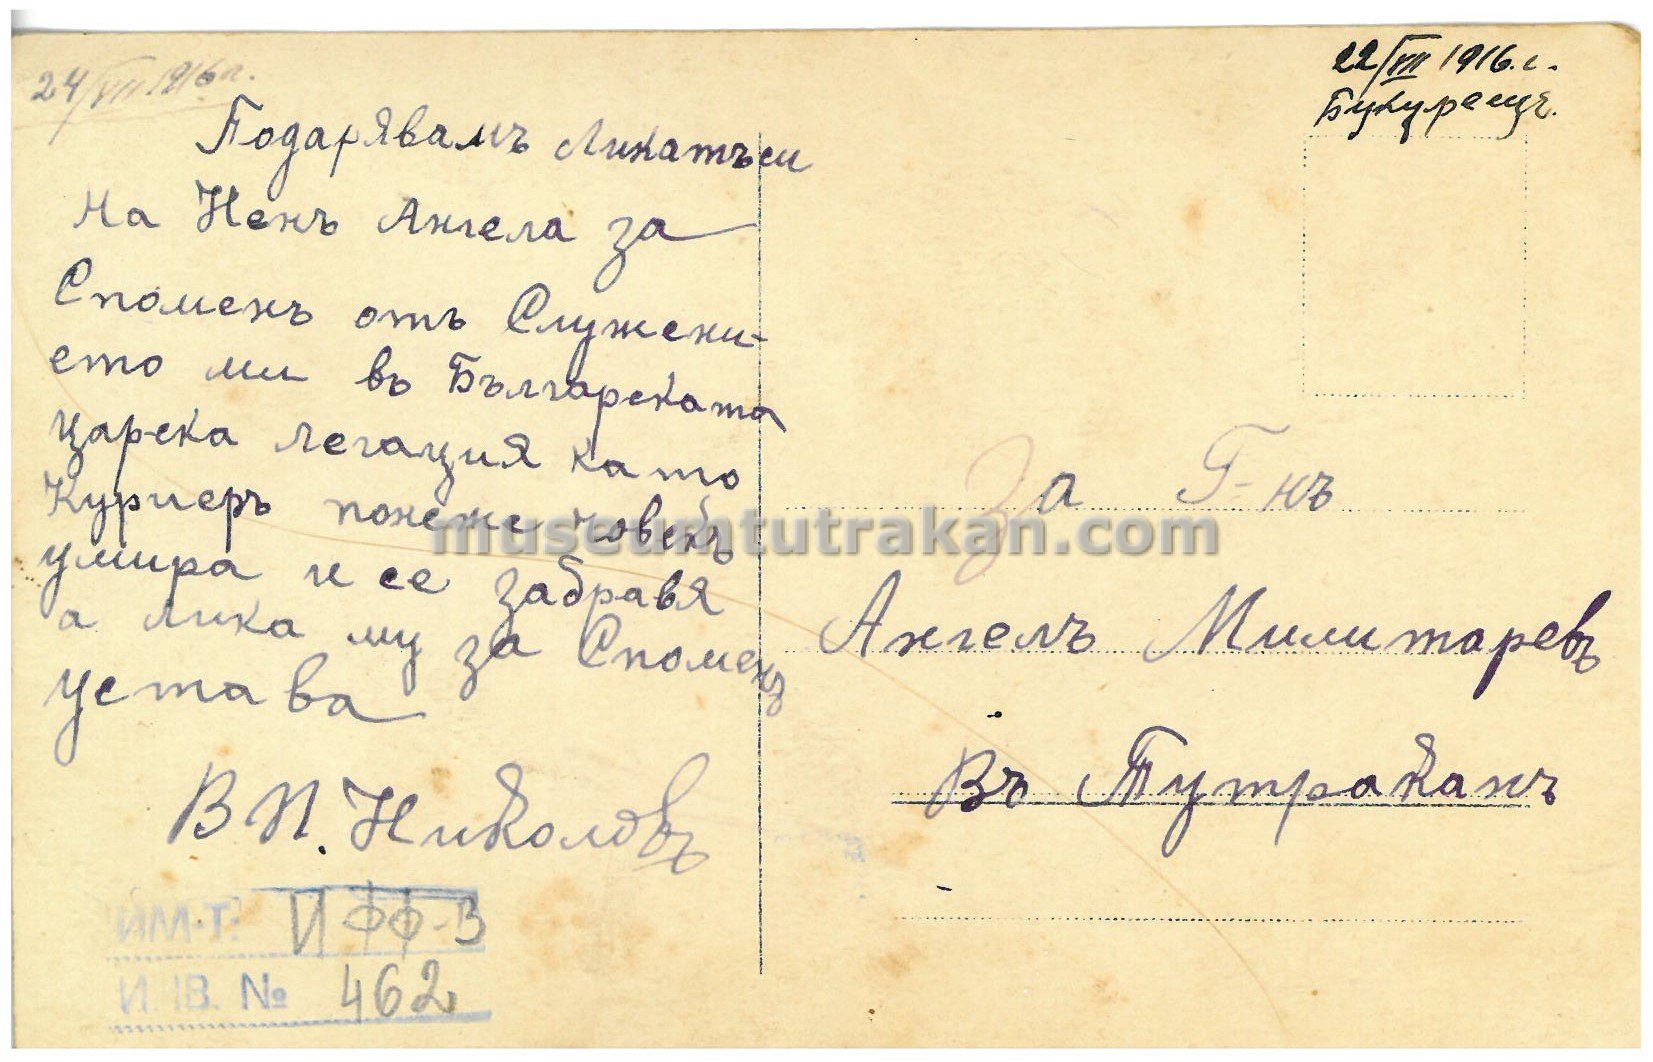 24/VII 1916 г.
Подарявамъ Ликатъси
на Ненъ Ангела за
Споменъ отъ Служени-
ето ми въ Българската
царска легация като
Куриеръ понеже човекъ
умира и се забравя
а лика му за Споменъ
устава
В П. Николовъ
ИМ-Т. И ФФ-В
И. ІВ. № 462
22/VII 1916.г.
Букурещъ.
За Г-нъ
Ангелъ Милитаревъ
Въ Тутраканъ
museumtutrakan.com